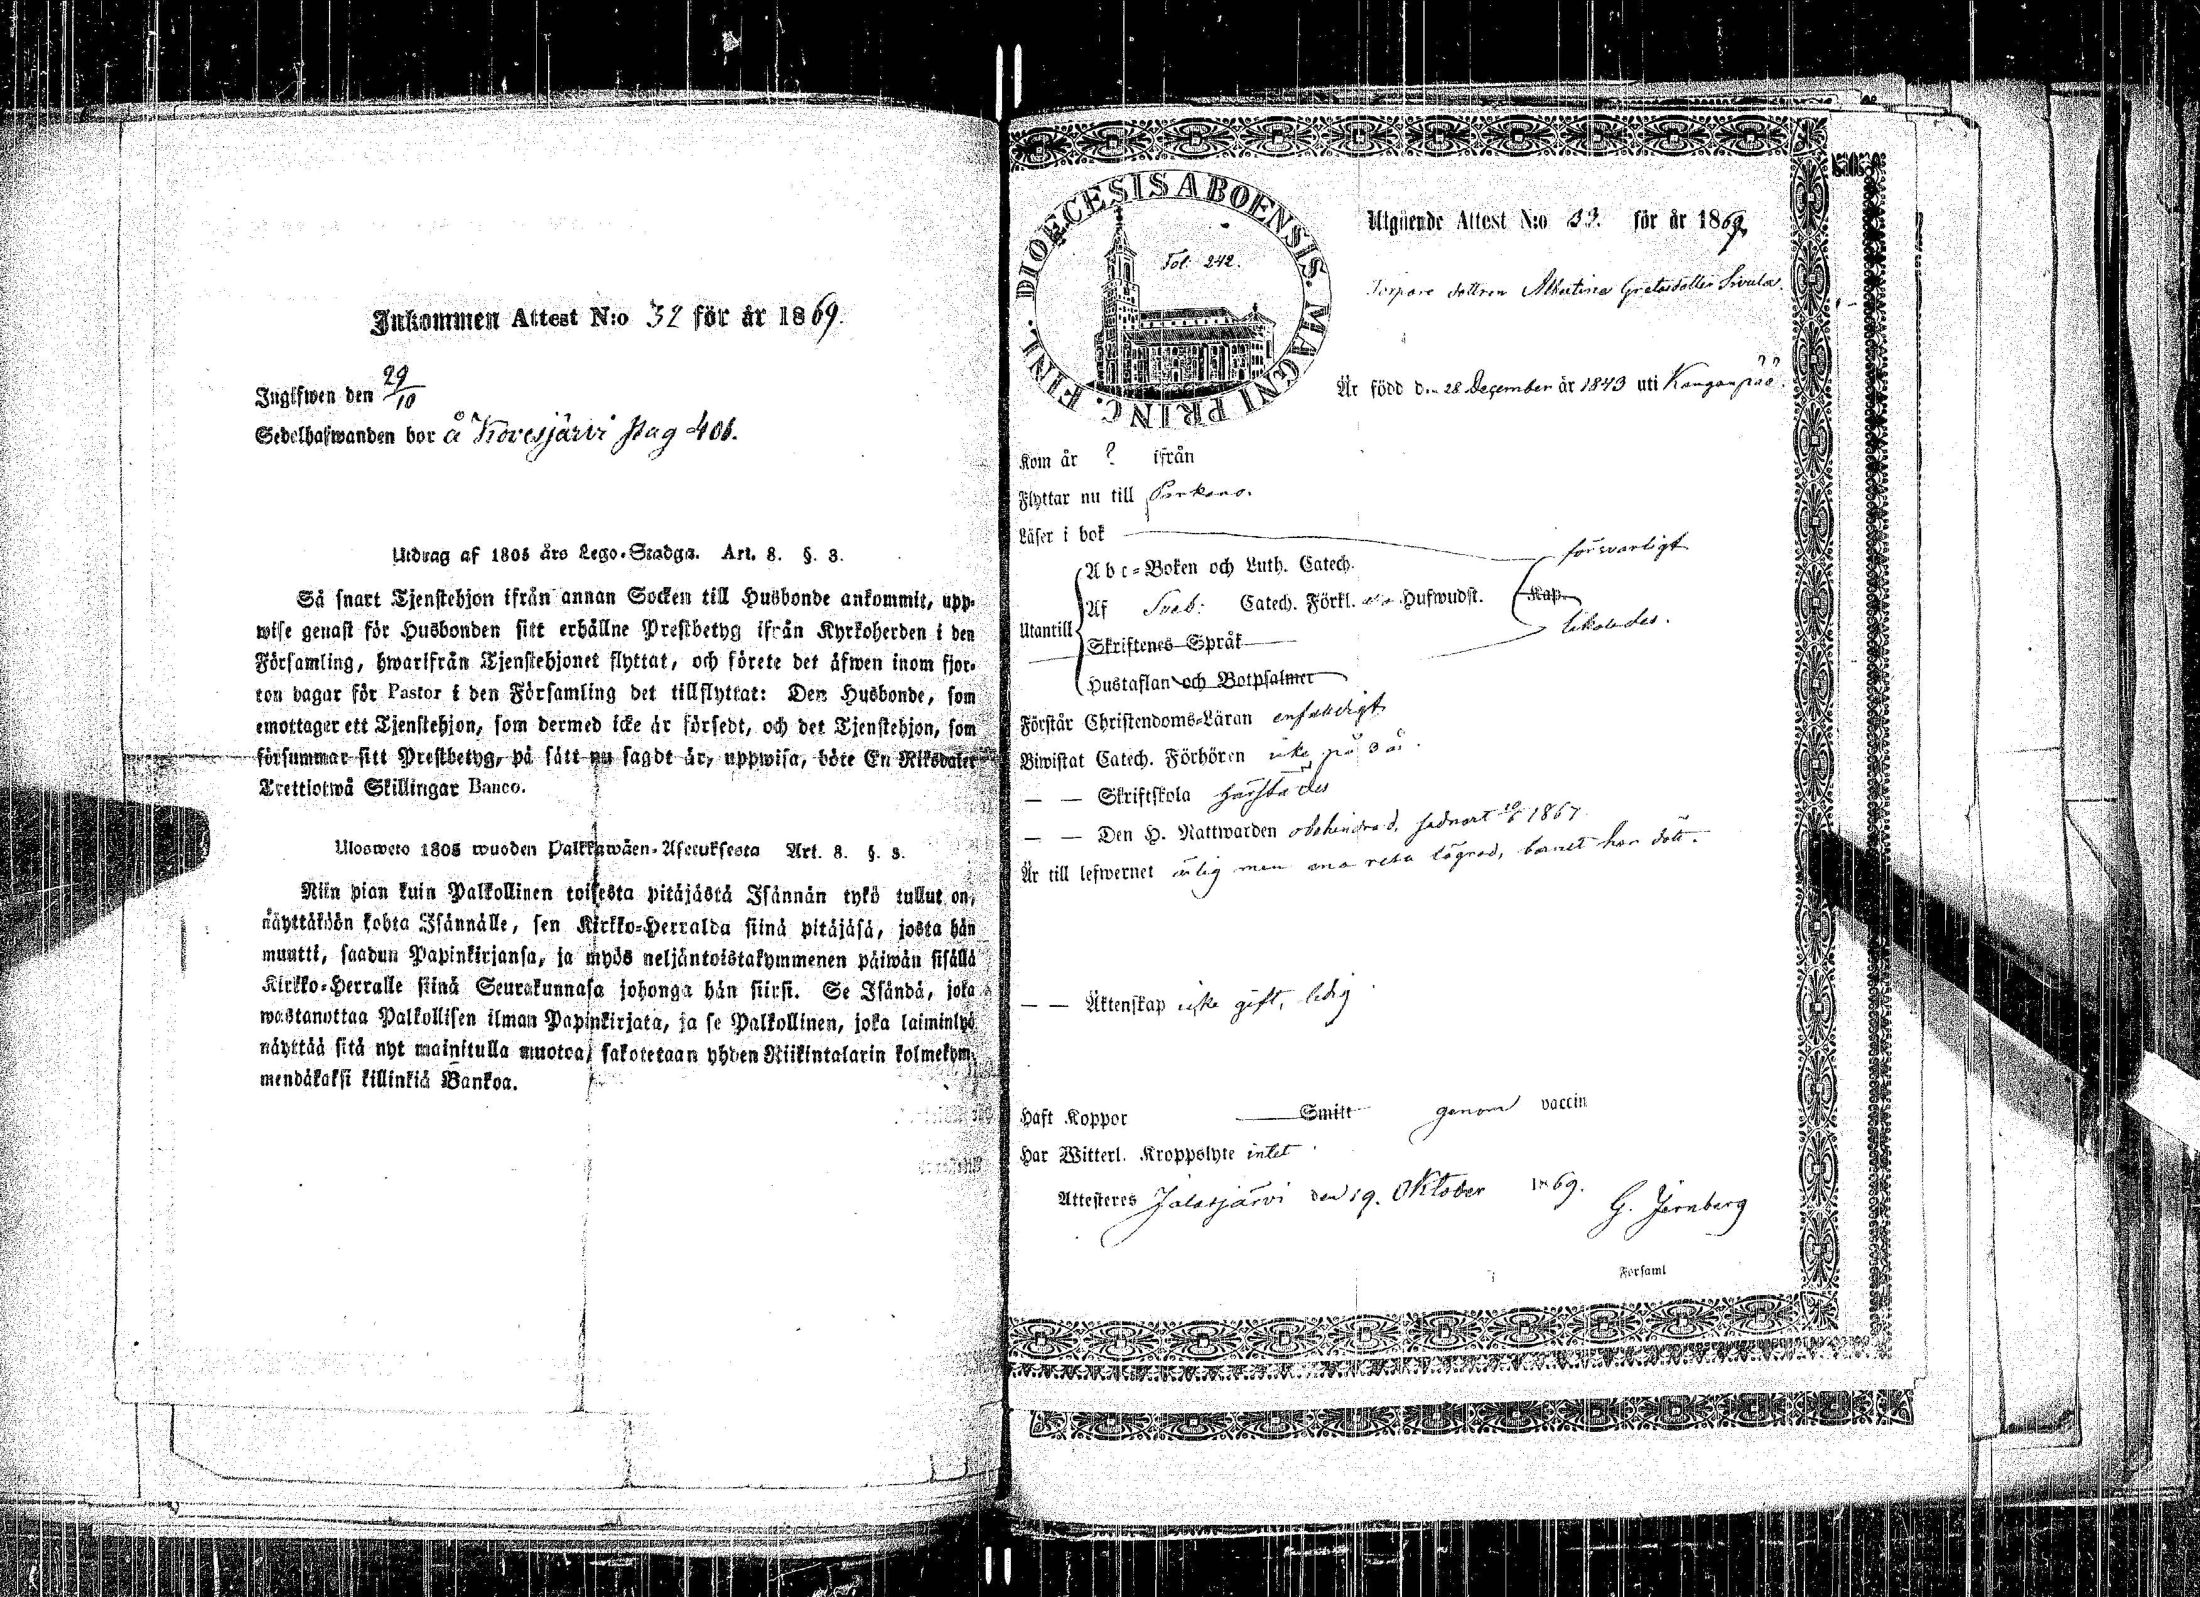 Inkommen Attest N:o 32 för år 1869.
Ingifwen den 29/10
Sedelhafwanden bor å Kovesjärvi pag 406.
Utdrag af 1805 års Lego-Stadga. Art. 8. §. 3.
Så snart Tjenstehjon ifrån annan Socken till Husbonde ankommit, upp-
wise genast för Husbonden sitt erhållne Prestbetyg ifrån Kyrkoherden i den
Församling, hwarifrån Tjenstehjonet flyttat, och förete det äfwen inom fjor-
ton dagar för Pastor i den Församling det tillflyttat: Den Husbonde, som
emottager ett Tjenstehjon, som dermed icke är försedt, och det Tjenstehjon, som
försummar sitt Prestbetyg, på sätt nu sagdt är, uppwisa, böte En Riksdaler
Trettiotwå Skillingar Banco.
Ulosweto 1805 wuoden Palkkawäen-Asetuksesta Art. 8. §. 3.
Niin pian kuin Palkollinen toisesta pitäjästä Isännän tykö tullut on,
näyttäköön kohta Isännälle, sen Kirkko-Herralda siinä pitäjäsä, josta hän
muutti, saadun Papinkirjansa, ja myös neljäntoistakymmenen päiwän sisällä
Kirkko-Herralle siinä Seurakunnasa johonga hän siirsi. Se Isändä, joka
wastanottaa Palkollisen ilman Papinkirjata, ja se Palkollinen, joka laiminlyö
näyttää sitä nyt mainitulla muotoa, sakotetaan yhden Riikintalarin kolmekym-
mendäkaksi killinkiä Bankoa.
DIOECESIS ABOENSIS. MAGNI PRINC. FINL.
Fol. 242.
Utgående Attest N:o 33. för år 1869.
Torpare dottren Albertina Gretasdotter Sivula.
Är född den 28 December år 1843 uti Kanganpää.
Kom år ? ifrån
Flyttar nu till Parkano.
Läser i bok försvarligt
Utantill
Abc-Boken och Luth. Catech.
Af Sveb: Catech. Förkl. Hufwudst. Kap.
likaledes.
Skriftenes Språk
Hustaflan och Botpsalmer
Förstår Christendoms-Läran enfaldigt
Biwistat Catech. Förhören icke på 3 år.
— — Skriftskola härstädes
— — Den H. Nattwarden obehindrad, sednast 10/6 1867
Är till lefwernet ärlig men lägrad, barnet har dött.
— — Äktenskap icke gift, ledig
Haft Koppor Smitt genom vaccin
Har Witterl. Kroppslyte intet
Attesteres Jalasjärvi den 19. Oktober 1869. G. Jernberg
Församl